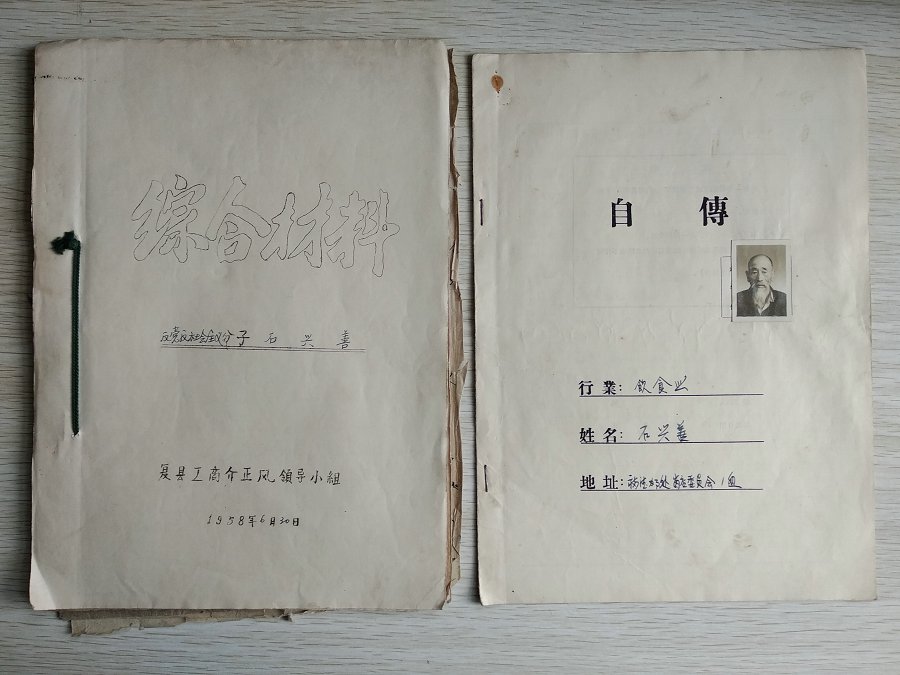 综合材料
反党反社会主义分子 石兴善
夏县工商介正风領导小組
1958年6月30日
自傳
行業：飲食业
姓名：石兴善
地址：